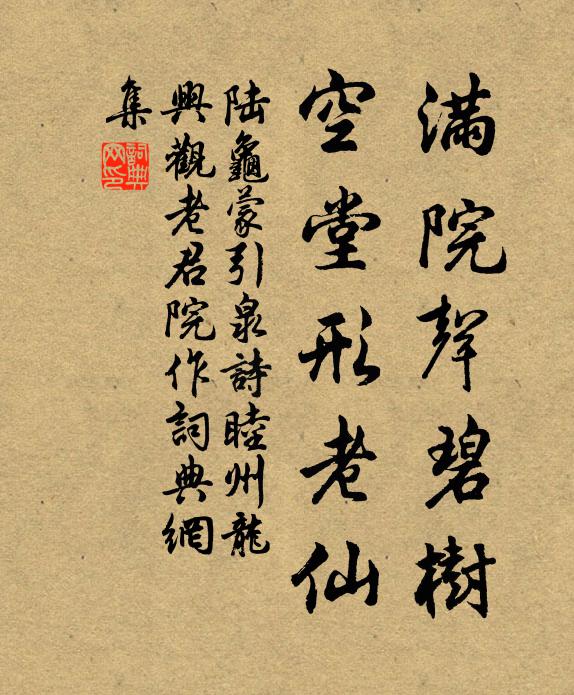 滿院聲碧樹
空堂形老仙
陆龜蒙引泉詩睦州龍
興觀老君院作詞典網
集
詞典网印